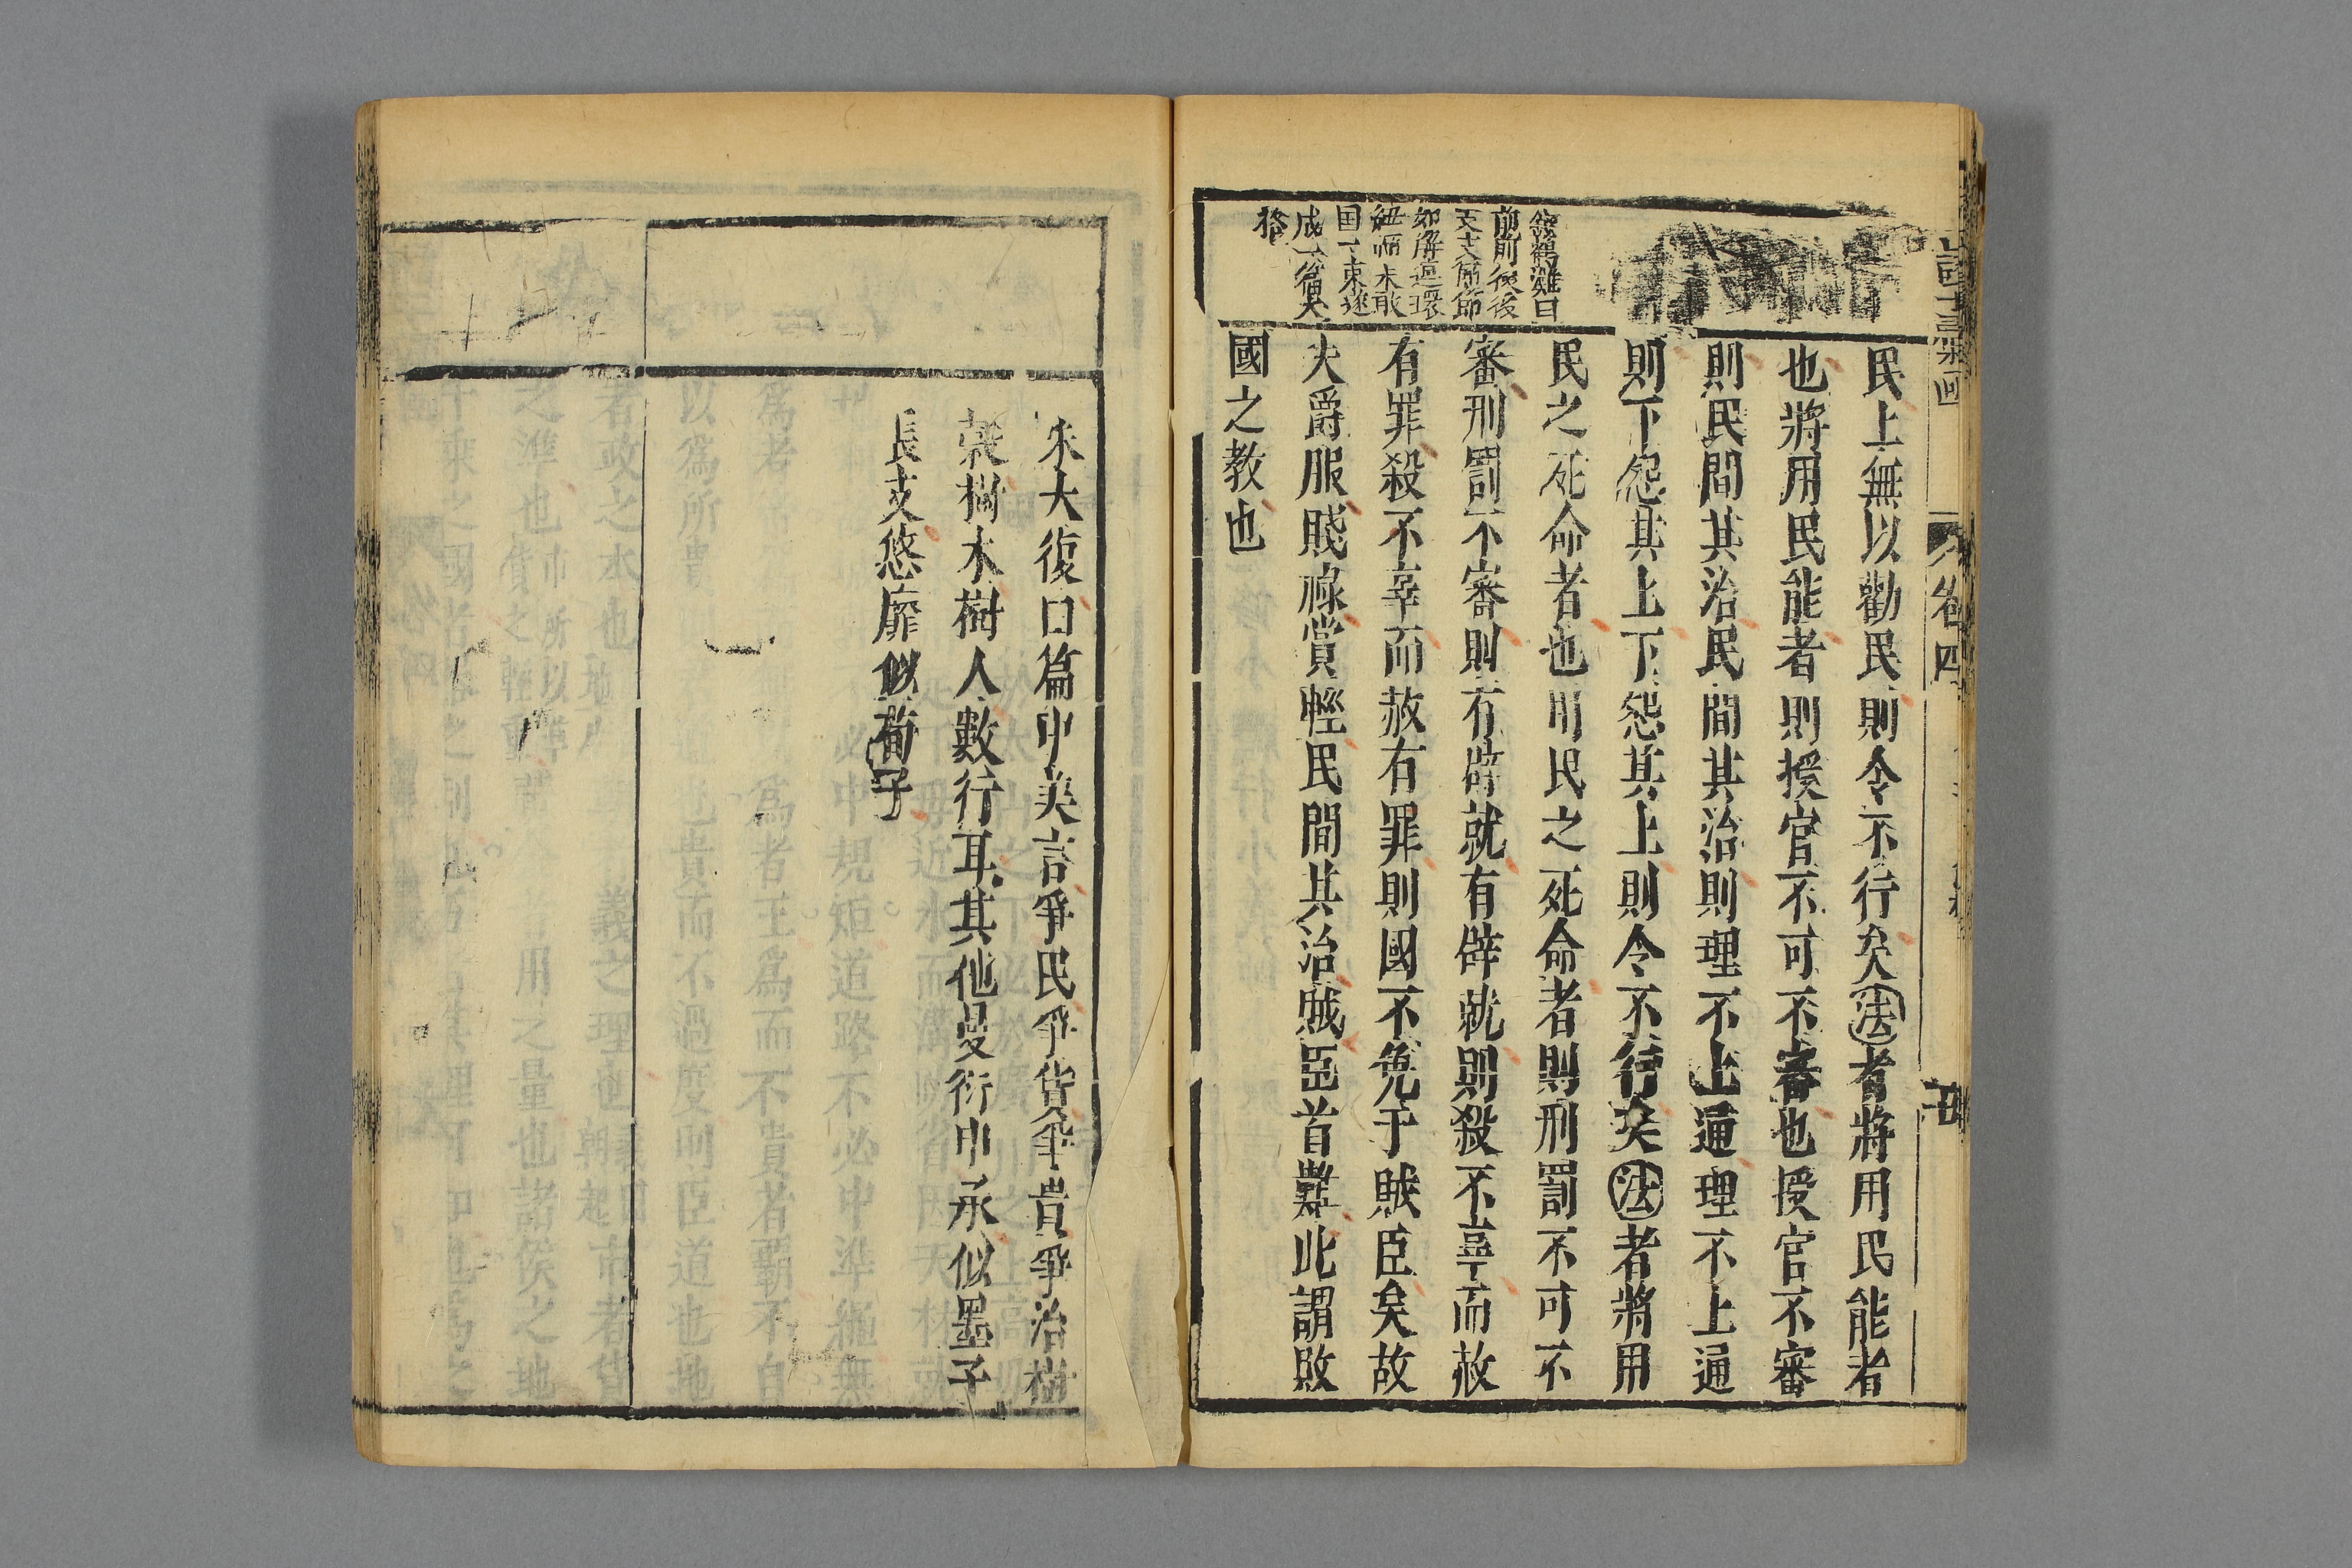 民上無以勸民則令不行矣法者將用民能者
也將用民能者則授官不可不審也授官不審
則民間其治民間其治則理不上通理不上通
則下怨其上下怨其上則令不行矣法者將用
民之死命者也用民之死命者則刑罰不可不
審刑罰不審則有辟就有辟就則殺不辜而赦
有罪殺不辜而赦有罪則國不免于賊臣矣故
夫爵服賤祿賞輕民間其治賊臣首難此謂敗
國之教也
鶴灘曰
前前後後
支支節節
如解連環
紐而未敢
国一束遂
成一篇大
格
卷四
朱大復曰篇中美言爭民爭貨爭貴爭治樹
穀樹木樹人數行耳其他曼衍中承似墨子
長支悠靡似荀子